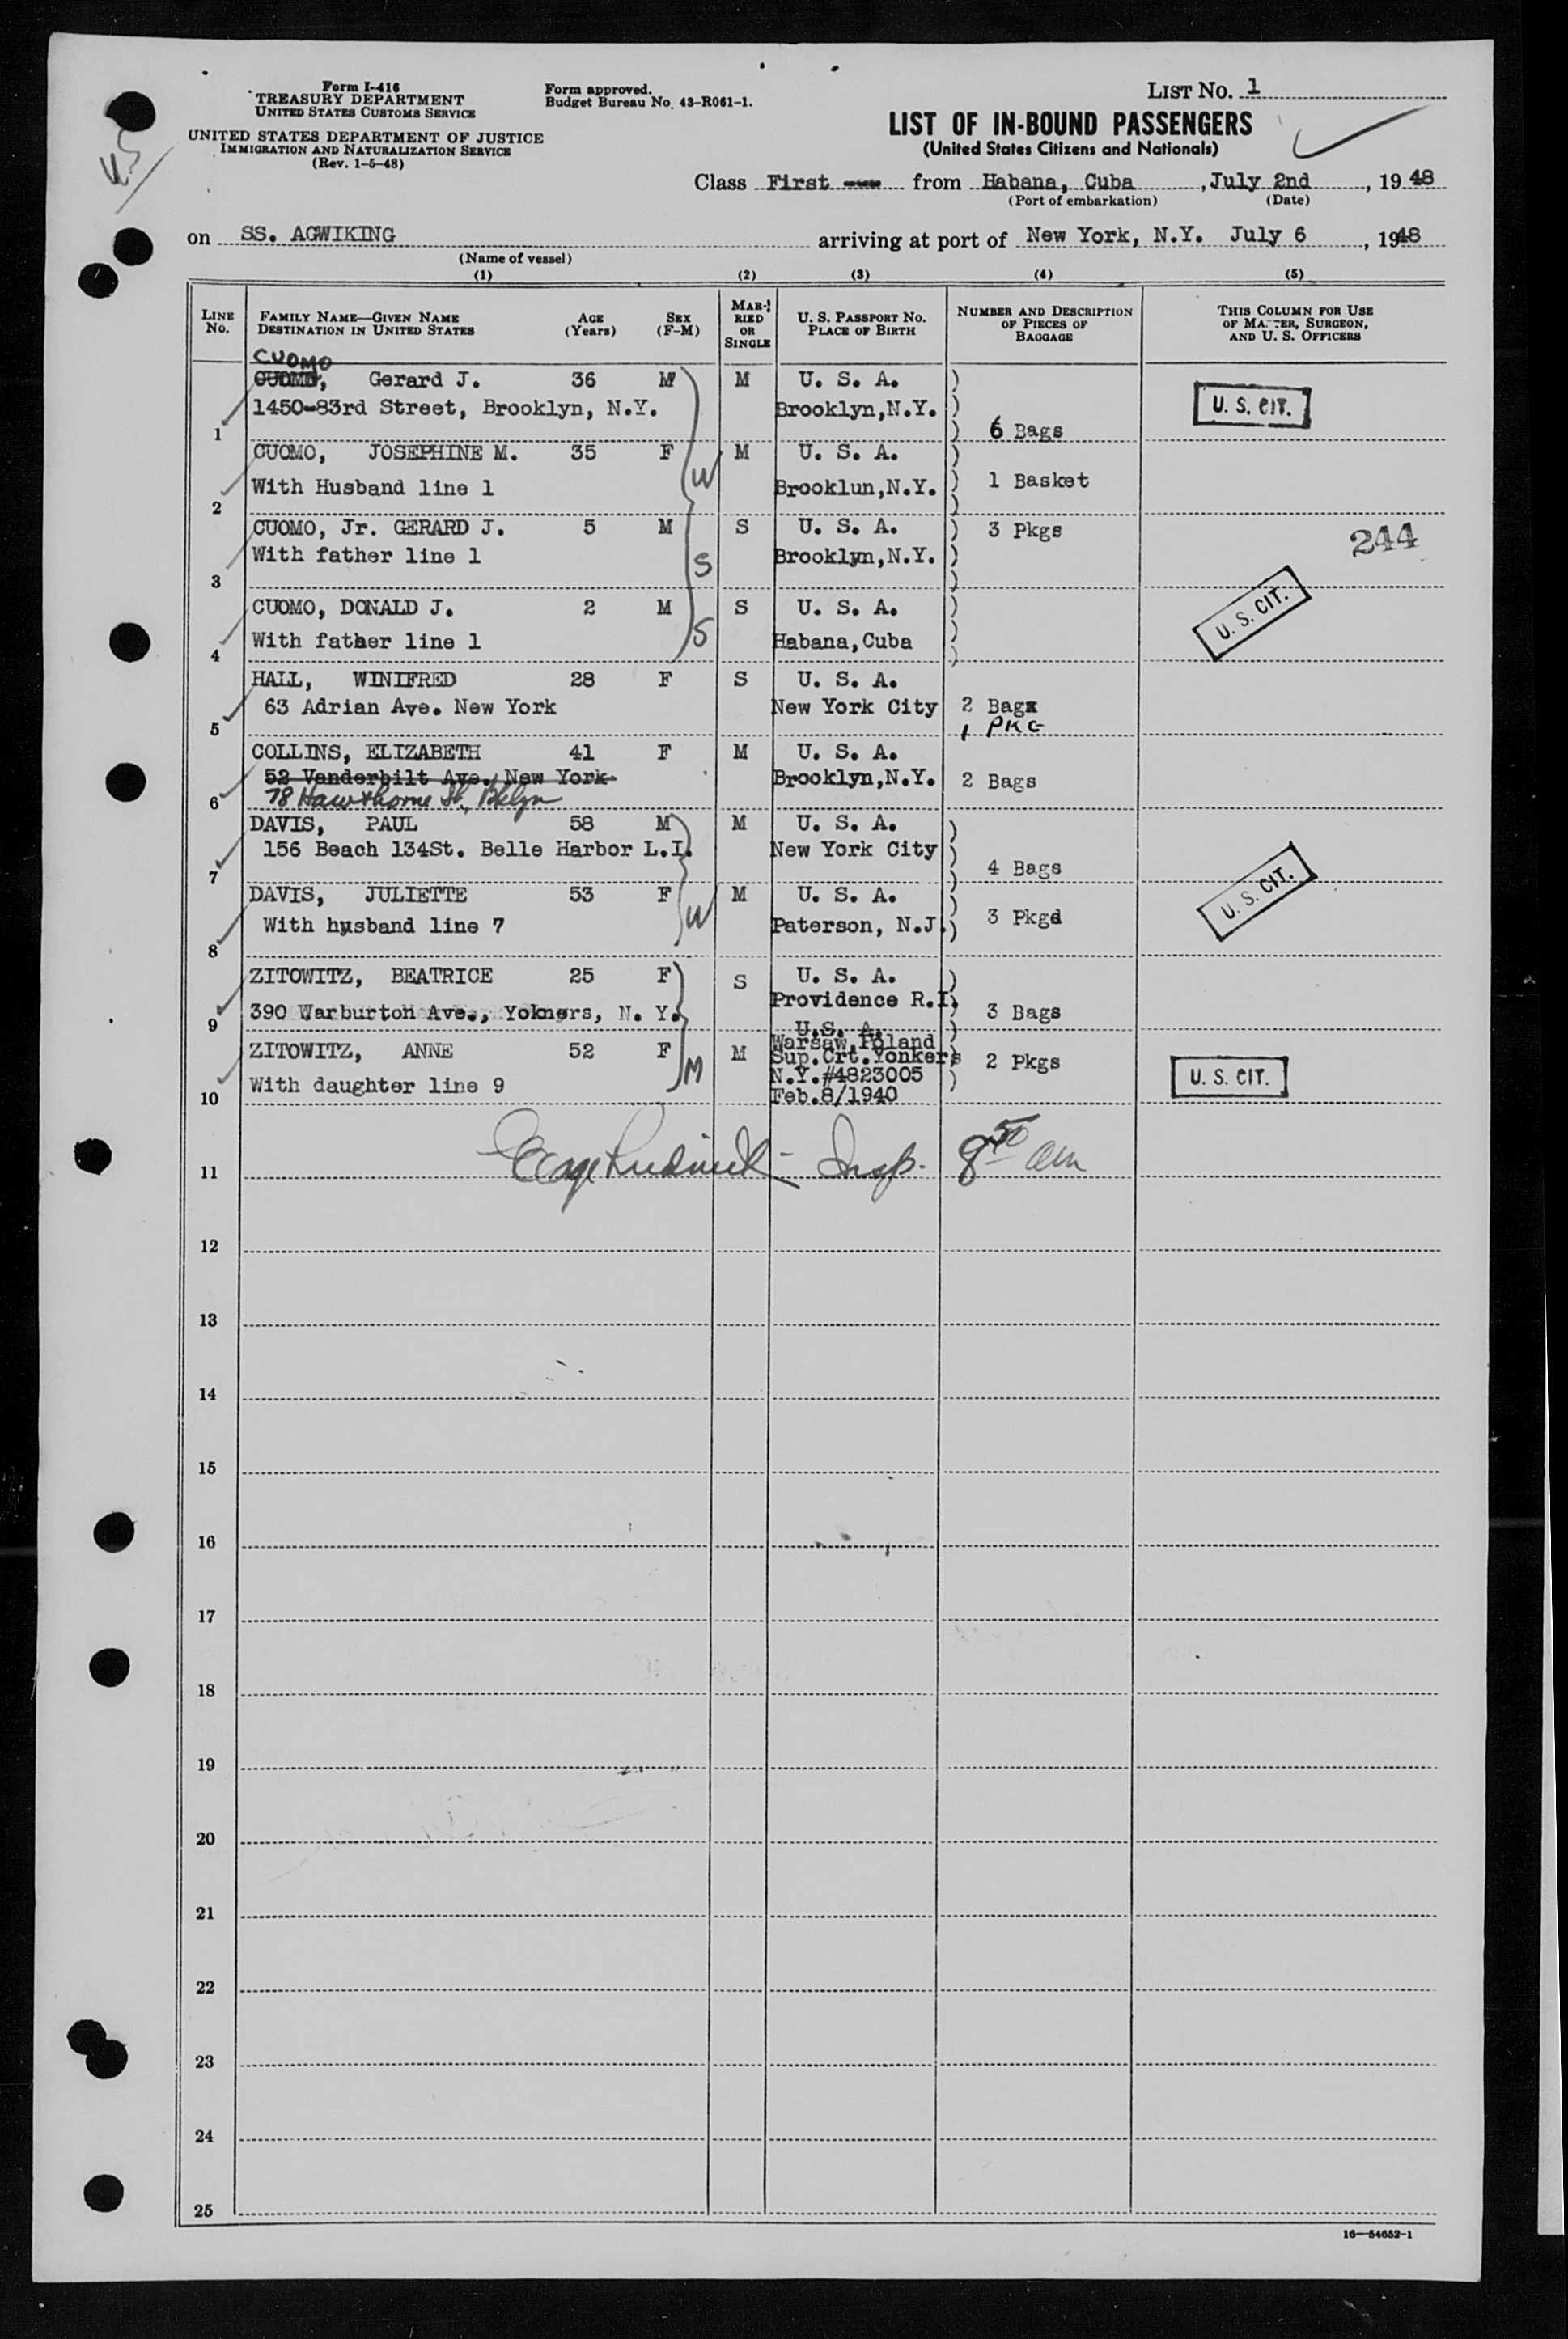 Form I-416
TREASURY DEPARTMENT
UNITED STATES CUSTOMS SERVICE
UNITED STATES DEPARTMENT OF JUSTICE
IMMIGRATION AND NATURALIZATION SERVICE
(Rev. 1-5-48)
Form approved.
Budget Bureau No. 43-R061-1.
LIST No. 1
LIST OF IN-BOUND PASSENGERS
(United States Citizens and Nationals)
Class First from Habana, Cuba, July 2nd, 1948
(Port of embarkation) (Date)
on SS. AGWIKING arriving at port of New York, N.Y. July 6, 1948
(Name of vessel)
(1) (2) (3) (4) (5)
LINE No. FAMILY NAME—GIVEN NAME DESTINATION IN UNITED STATES AGE (Years) SEX (F-M) MARRIED OR SINGLE U. S. PASSPORT NO. PLACE OF BIRTH NUMBER AND DESCRIPTION OF PIECES OF BAGGAGE THIS COLUMN FOR USE OF MASTER, SURGEON, AND U. S. OFFICERS
CUOMO
CUOMO, Gerard J. 36 M M U. S. A.
1450-83rd Street, Brooklyn, N.Y. Brooklyn,N.Y. U. S. CIT.
1 6 Bags
CUOMO, JOSEPHINE M. 35 F M U. S. A.
With Husband line 1 W Brooklun,N.Y. 1 Basket
2
CUOMO, Jr. GERARD J. 5 M S U. S. A. 3 Pkgs 244
With father line 1 S Brooklyn,N.Y.
3
CUOMO, DONALD J. 2 M S U. S. A. U. S. CIT.
With father line 1 S Habana,Cuba
4
HALL, WINIFRED 28 F S U. S. A.
63 Adrian Ave. New York New York City 2 Bags
5 1 PKG
COLLINS, ELIZABETH 41 F M U. S. A.
52 Vanderbilt Ave. New York Brooklyn,N.Y. 2 Bags
6 78 Hawthorne St., Bklyn
DAVIS, PAUL 58 M M U. S. A.
156 Beach 134St. Belle Harbor L.I. New York City
7 4 Bags
DAVIS, JULIETTE 53 F M U. S. A. U. S. CIT.
With husband line 7 W Paterson, N.J. 3 Pkgd
8
ZITOWITZ, BEATRICE 25 F S U. S. A.
Providence R.I.
9 390 Warburton Ave., Yokners, N. Y. 3 Bags
U.S. A.
ZITOWITZ, ANNE 52 F M Warsaw,Poland
Sup.Crt.Yonkers 2 Pkgs
With daughter line 9 M N.Y.#4823005 U. S. CIT.
10 Feb.8/1940
11 Insp. 8 50 am
12
13
14
15
16
17
18
19
20
21
22
23
24
25
16—54652-1